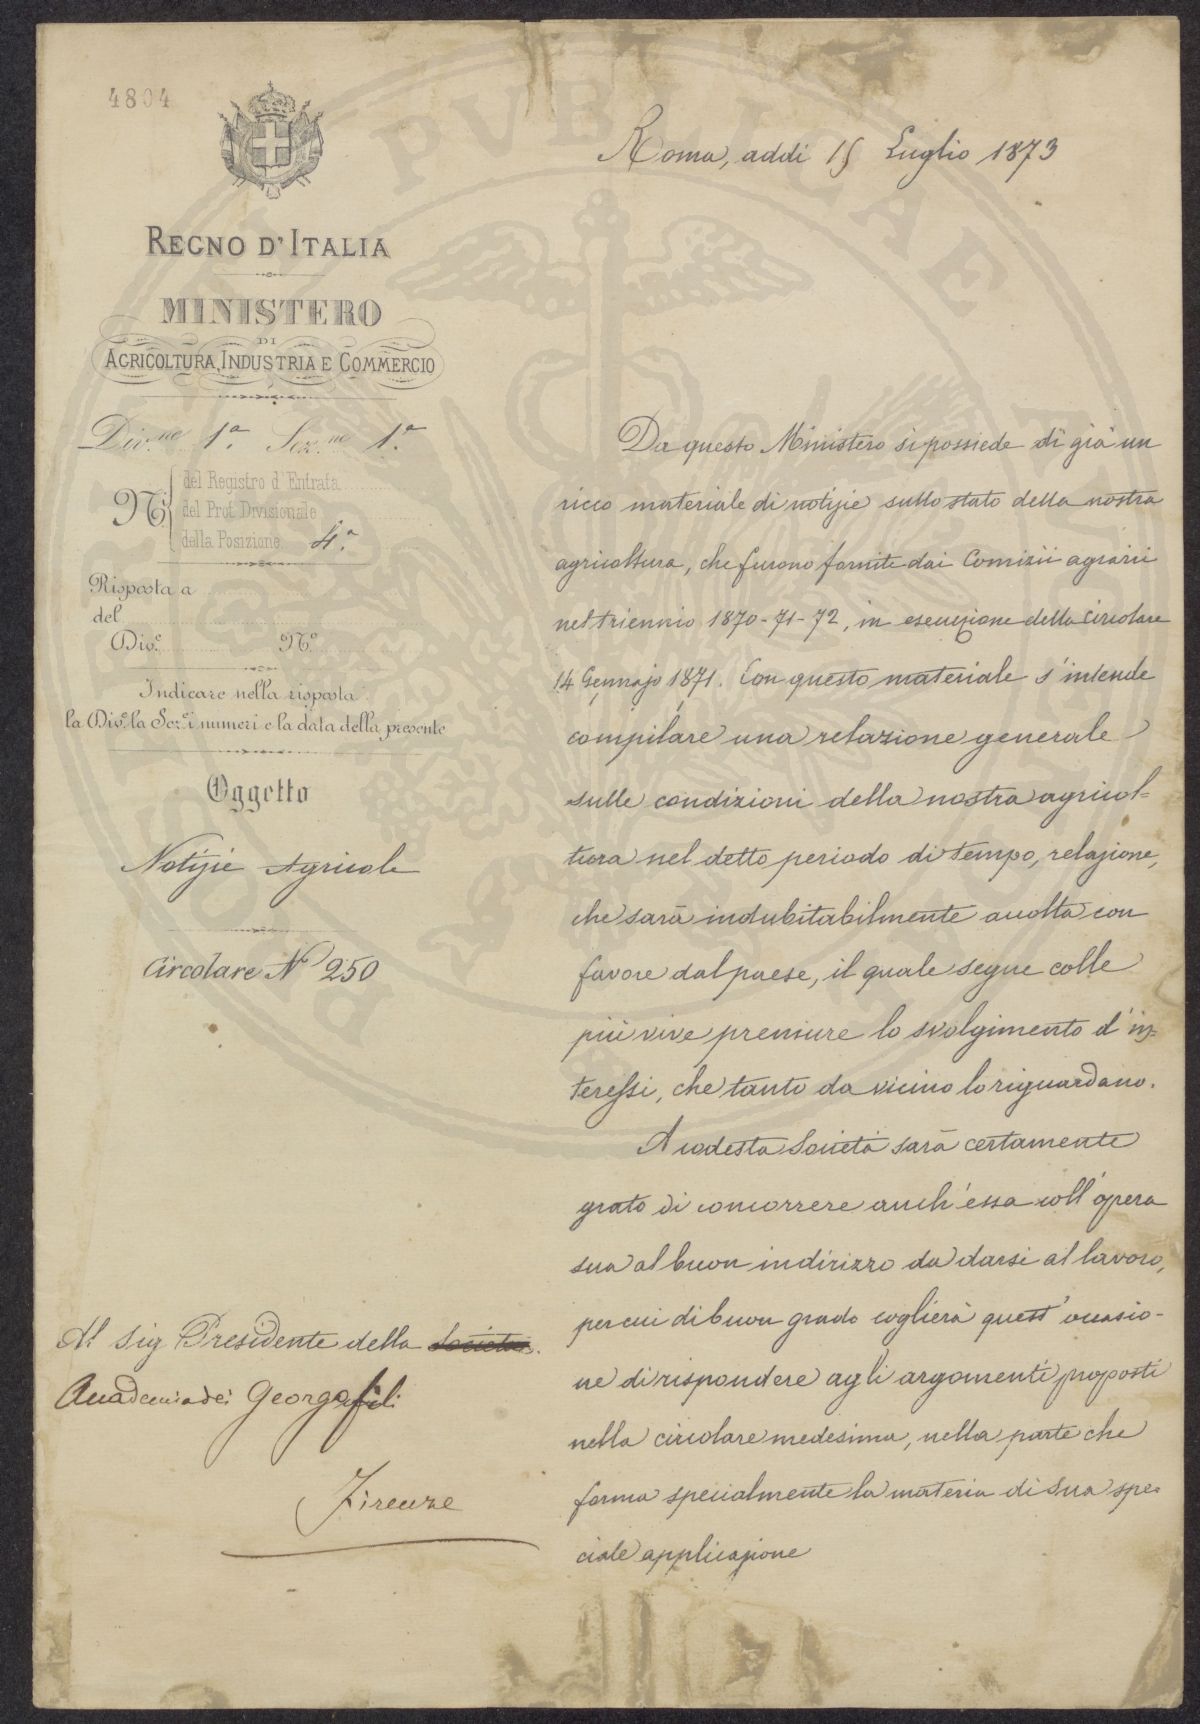 4804
REGNO D'ITALIA
MINISTERO
DI
AGRICOLTURA, INDUSTRIA E COMMERCIO
Div.ne 1a. Sez.ne 1a.
Ni
del Registro d'Entrata
del Prot. Divisionale
della Posizione 4.a
Risposta a
del
Div.e N.o
Indicare nella risposta
la Div.e la Sez.e i numeri e la data della presente
Oggetto
Notizie Agricole
Circolare N° 250
Al Sig Presidente della Società.
Accademia dei Georgofili
Firenze
Roma, addì 15 Luglio 1873
Da questo Ministero si possiede di già un
ricco materiale di notizie sullo stato della nostra
agricoltura, che furono fornite dai Comizii agrarii
nel triennio 1870-71-72, in esecuzione della Circolare
14 Gennajo 1871. Con questo materiale s'intende
compilare una relazione generale
sulle condizioni della nostra agricol=
tura nel detto periodo di tempo, relazione,
che sarà indubitabilmente accolta con
favore dal paese, il quale segue colle
più vive premure lo svolgimento d'in=
teressi, che tanto da vicino lo riguardano.
A codesta Società sarà certamente
grato di concorrere anch'essa coll'opera
sua al buon indirizzo da darsi al lavoro,
per cui di buon grado coglierà quest'occasio-
ne di rispondere agli argomenti proposti
nella circolare medesima, nella parte che
forma specialmente la materia di sua spe=
ciale applicazione